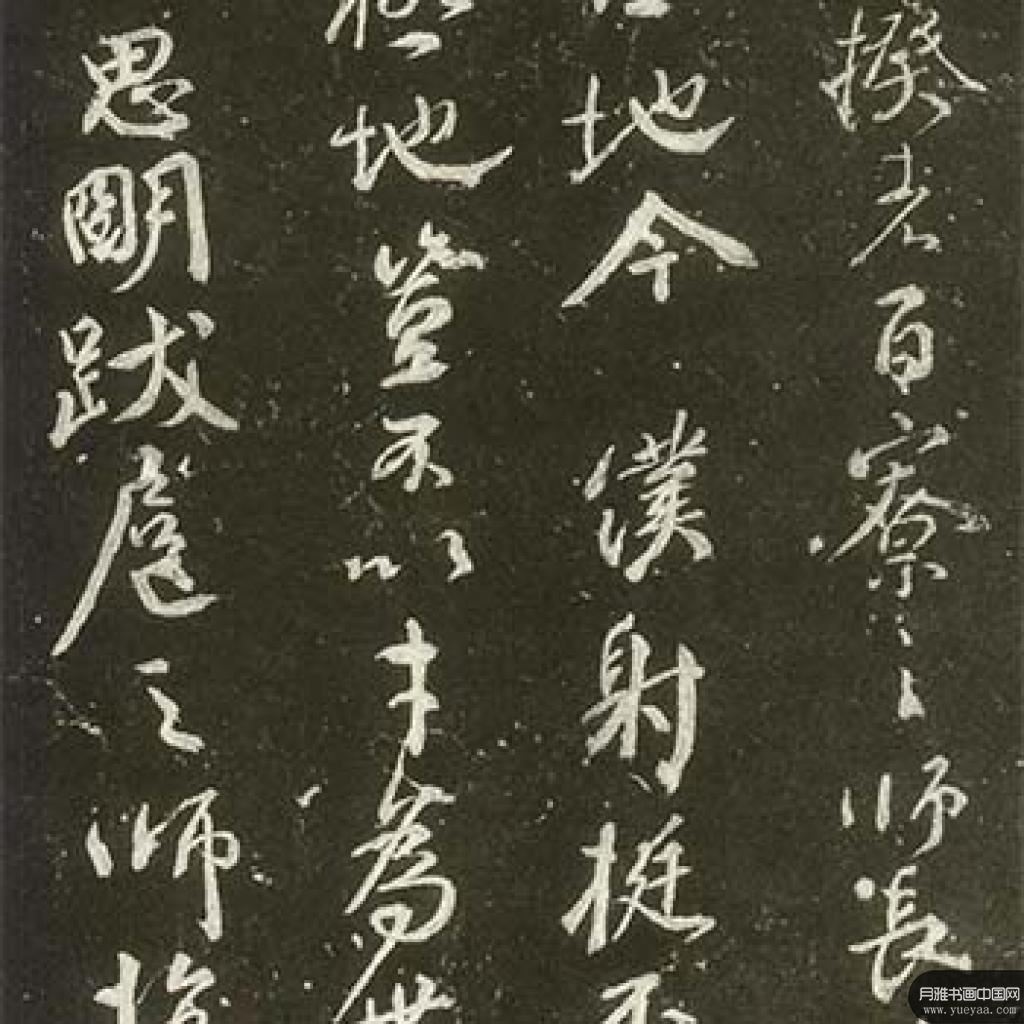 揆者百寮之師長
地今僕射挺不
極地豈不以才為世
思明跋扈之師抗
月雅书画中国网
www.yueyaa.com